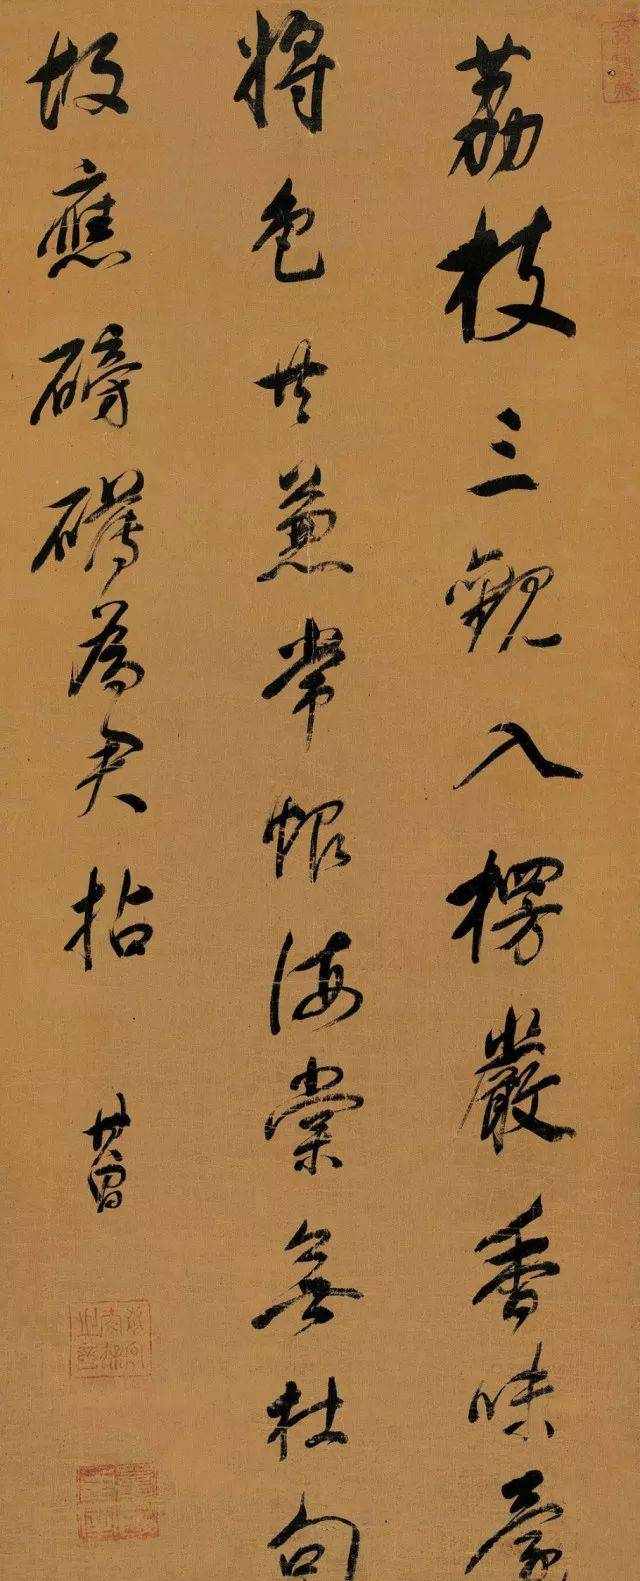 荔枝三觀入楞嚴香味
將色共兼常恨海棠無杜句
故應磅礴為君拈 其昌